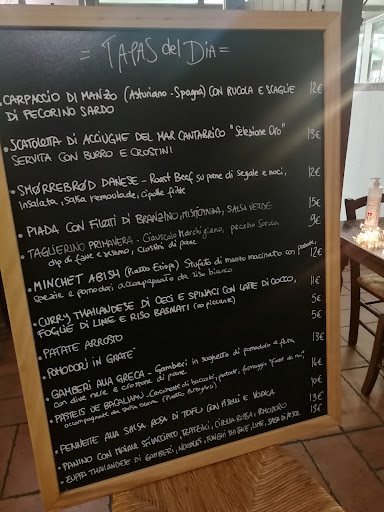 = TAPAS del DIA =
• CARPACCIO DI MANZO (Asturiano - Spagna) CON RUCOLA E SCAGLIE 12€
DI PECORINO SARDO
• SCATOLETTA DI ACCIUGHE DEL MAR CANTABRICO "Selezione Oro" 13€
SERVITA CON BURRO E CROSTINI
• SMØRREBRØD DANESE - Roast Beef su pane di segale e noci, 12€
Insalata, salsa remoulade, cipolle fritte
• PIADA CON FILETTI DI BRANZINO, MISTICANZA, SALSA VERDE 15€
• TAGLIERINO PRIMAVERA - Ciauscolo Marchigiano, pecorino Sardo, 9€
dip di fave e pecorino, crostini di pane
• MINCHET ABISH (Piatto Etiope) Stufato di manzo macinato con 12€
spezie e pomodori accompagnato da riso bianco
• CURRY THAILANDESE DI CECI E SPINACI CON LATTE DI COCCO, 11€
FOGLIE DI LIME E RISO BASMATI (no piccante) 5€
• PATATE ARROSTO 5€
• POMODORI IN GRATE'
• GAMBERI ALLA GRECA - Gamberi in saghetto di pomodoro e feta 13€
con olive nere e crostone di pane 14€
• PASTEIS DE BACALHAU - Crocchette di baccalà, patate, formaggio
accompagnate da salsa 10€
• PENNETTE ALLA SALSA ROSA DI TOFU CON PISELLI E VODKA
• PANINO CON MAIALE SFILACCIATO, CIPOLLA ROSSA, POMODORO 13€
• ZUPPA THAILANDESE DI GAMBERI, NOODLES, FUNGHI LIME, SALSA DI PESCE 13€